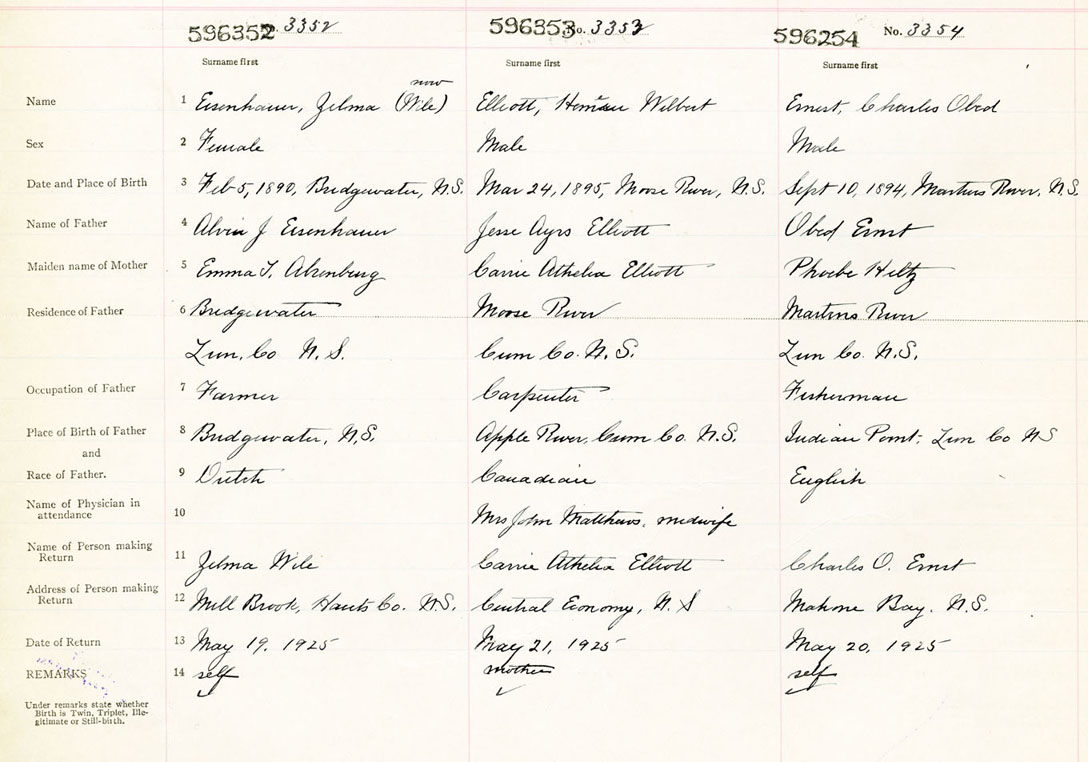 596352 No. 3352 596353 No. 3353 596254 No. 3354
Surname first Surname first Surname first
now
Name 1 Eisenhauer, Zelma (Wile) Elliott, Wilbert Ernest, Charles Obed
Sex 2 Female Male Male
Date and Place of Birth 3 Feb 5, 1890, Bridgewater, N.S. Mar 24, 1895, Moose River, N.S. Sept 10, 1894, Martins River, N.S.
Name of Father 4 Alvin J Eisenhauer Jesse Ayrs Elliott Obed Ernst
Maiden name of Mother 5 Emma Carrie Athelia Elliott Phoebe Hiltz
Residence of Father 6 Bridgewater Moose River Martins River
Lun. Co N.S. Cum Co. N.S. Lun Co. N.S.
Occupation of Father 7 Farmer Carpenter Fisherman
Place of Birth of Father 8 Bridgewater, N.S. Apple River, Cum Co. N.S. Indian Point, Lun Co NS
and
Race of Father. 9 Dutch Canadian English
Name of Physician in
attendance 10 Mrs John Matthews, midwife
Name of Person making
Return 11 Zelma Wile Carrie Athelia Elliott Charles O. Ernst
Address of Person making
Return 12 Mill Brook, Hants Co. N.S. Central Economy, N.S Mahone Bay. N.S.
Date of Return 13 May 19, 1925 May 21, 1925 May 20, 1925
REMARKS 14 self mother self
Under remarks state whether
Birth is Twin, Triplet, Ille-
gitimate or Still-birth.